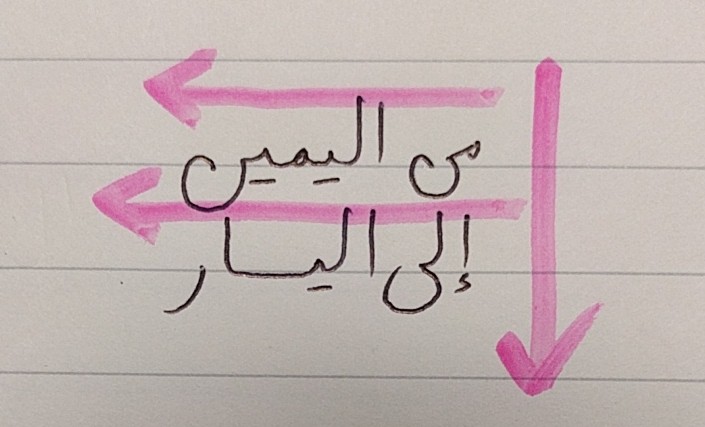 من اليمين
إلى اليسار